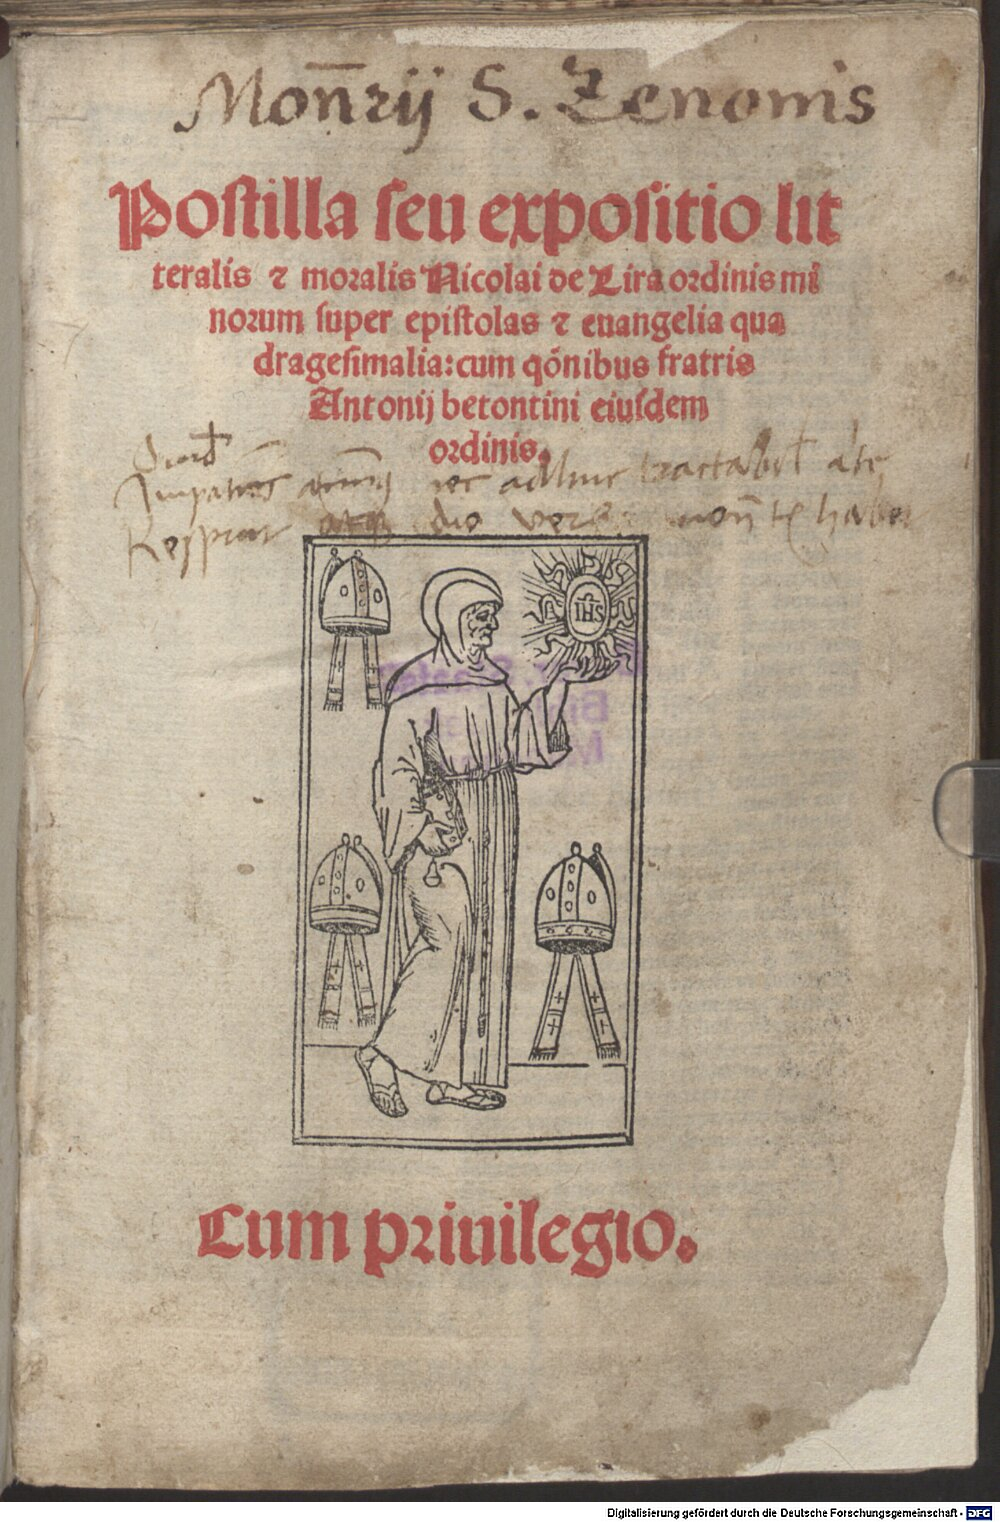 Mon̄rij S. Zenonis
Postilla seu expositio lit
teralis ⁊ moralis Nicolai de Lira ordinis mi
norum super epistolas ⁊ euangelia qua
dragesimalia: cum qōnibus fratris
Antonij betontini eiusdem
ordinis.
adhuc
IHS
Cum priuilegio.
Digitalisierung gefördert durch die Deutsche Forschungsgemeinschaft - DFG